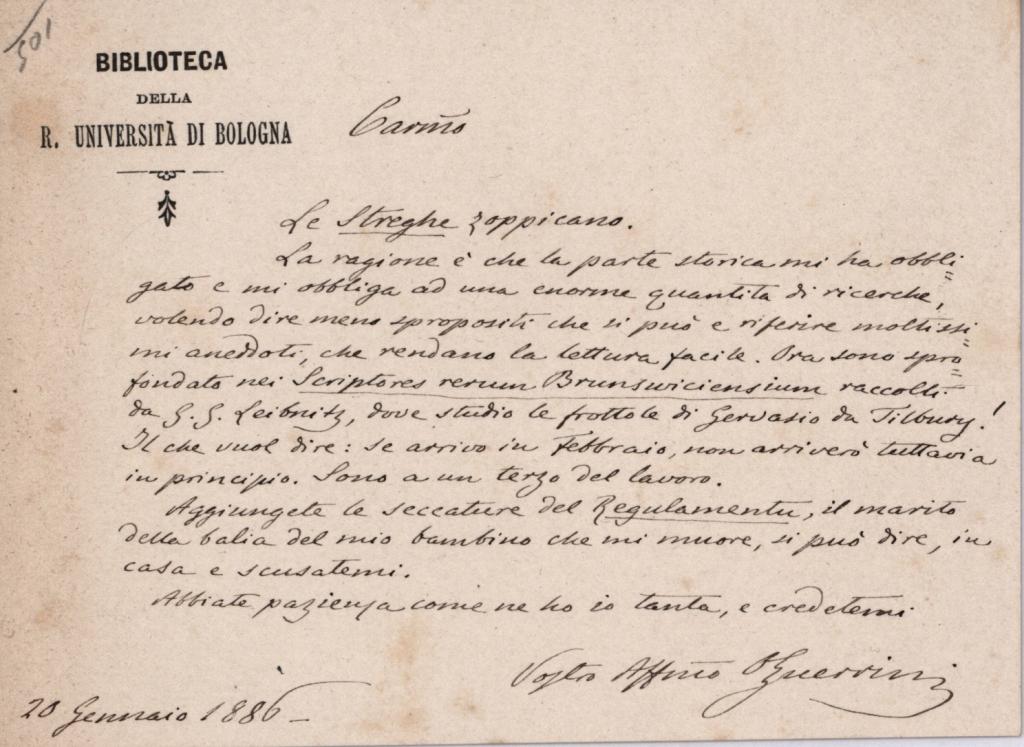 501
BIBLIOTECA
DELLA
R. UNIVERSITÀ DI BOLOGNA
Carm̃o
Le Streghe zoppicano.
La ragione è che la parte storica mi ha obbli=
gato e mi obbliga ad una enorme quantità di ricerche,
volendo dire meno spropositi che si può e riferire moltissi=
mi aneddoti, che rendano la lettura facile. Ora sono spro=
fondato nei Scriptores rerum Brunswiciensium raccolti
da G. G. Leibnitz, dove studio le frottole di Gervasio da Tilbury!
Il che vuol dire: se arrivo in Febbraio, non arriverò tuttavia
in principio. Sono a un terzo del lavoro.
Aggiungete le seccature del Regulamentu, il marito
della balia del mio bambino che mi muore, si può dire, in
casa e scusatemi.
Abbiate pazienza come ne ho io tanta, e credetemi
Vostro Affm̃o OGuerrini
20 Gennaio 1886 –